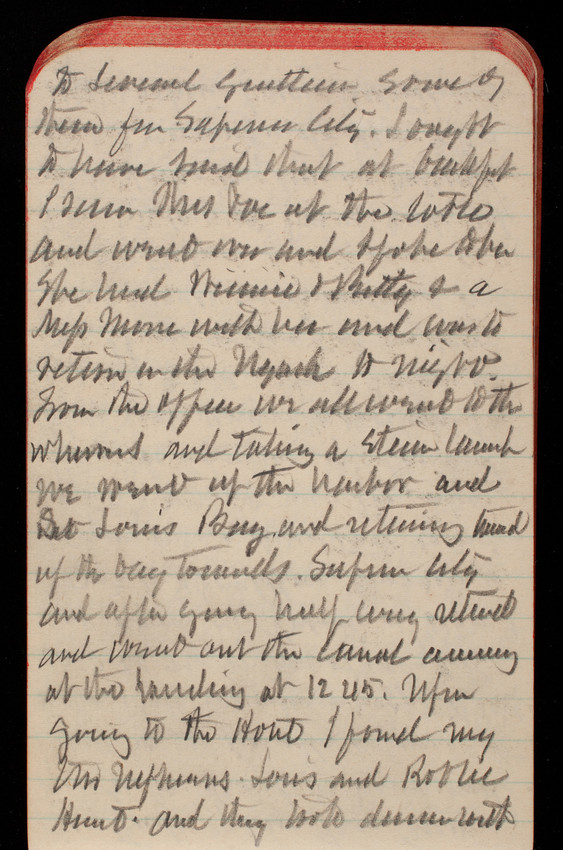 to several gentlemen some of
them from Superior City. I ought
to have said that at breakfast
I saw Mrs Poe at the table
and went over and spoke to her
She had Winnie & Betty & a
Miss Moore with her and was to
return in the to night.
From the office we all went to the
wharves and taking a steam launch
we went up the harbor and
Louis Bay, and returning turned
up the bay towards Superior City
and after going half way returned
and went out the canal arriving
at the landing at 12 45. Upon
going to the Hotel I found my
two nephews Louis and
Hunt and they took dinner with